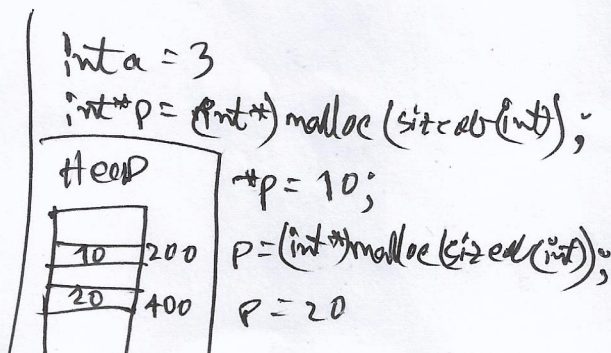 int a = 3
int*p = (int*) malloc (sizeof(int);
Heap
*p = 10;
10 200
p=(int*)malloc(sizeof(int);
20 400
p = 20